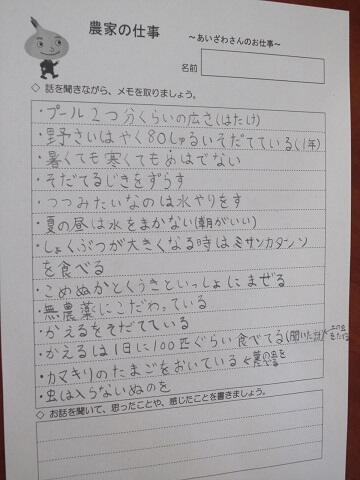 農家の仕事
～あいざわさんのお仕事～
名前
◇ 話を聞きながら、メモを取りましょう。
・プール2つ分くらいの広さ(はたけ)
・野さいはやく80しゅるいそだてている(1年)
・暑くても寒くてもめはでない
・そだてるじきをずらす
・つつみたいなのは水やりをす
・夏の昼は水をまかない(朝がいい)
・しょくぶつが大きくなる時はミサンカターンソ
を食べる
・こめぬかとくうきといっしょにまぜる
・無農薬にこだわっている
・かえるをそだてている
・かえるは1日に100匹ぐらい食べてる(聞いた分)
・カマキリのたまごをおいている
・虫は入らないぬのを
◇ お話を聞いて、思ったことや、感じたことを書きましょう。